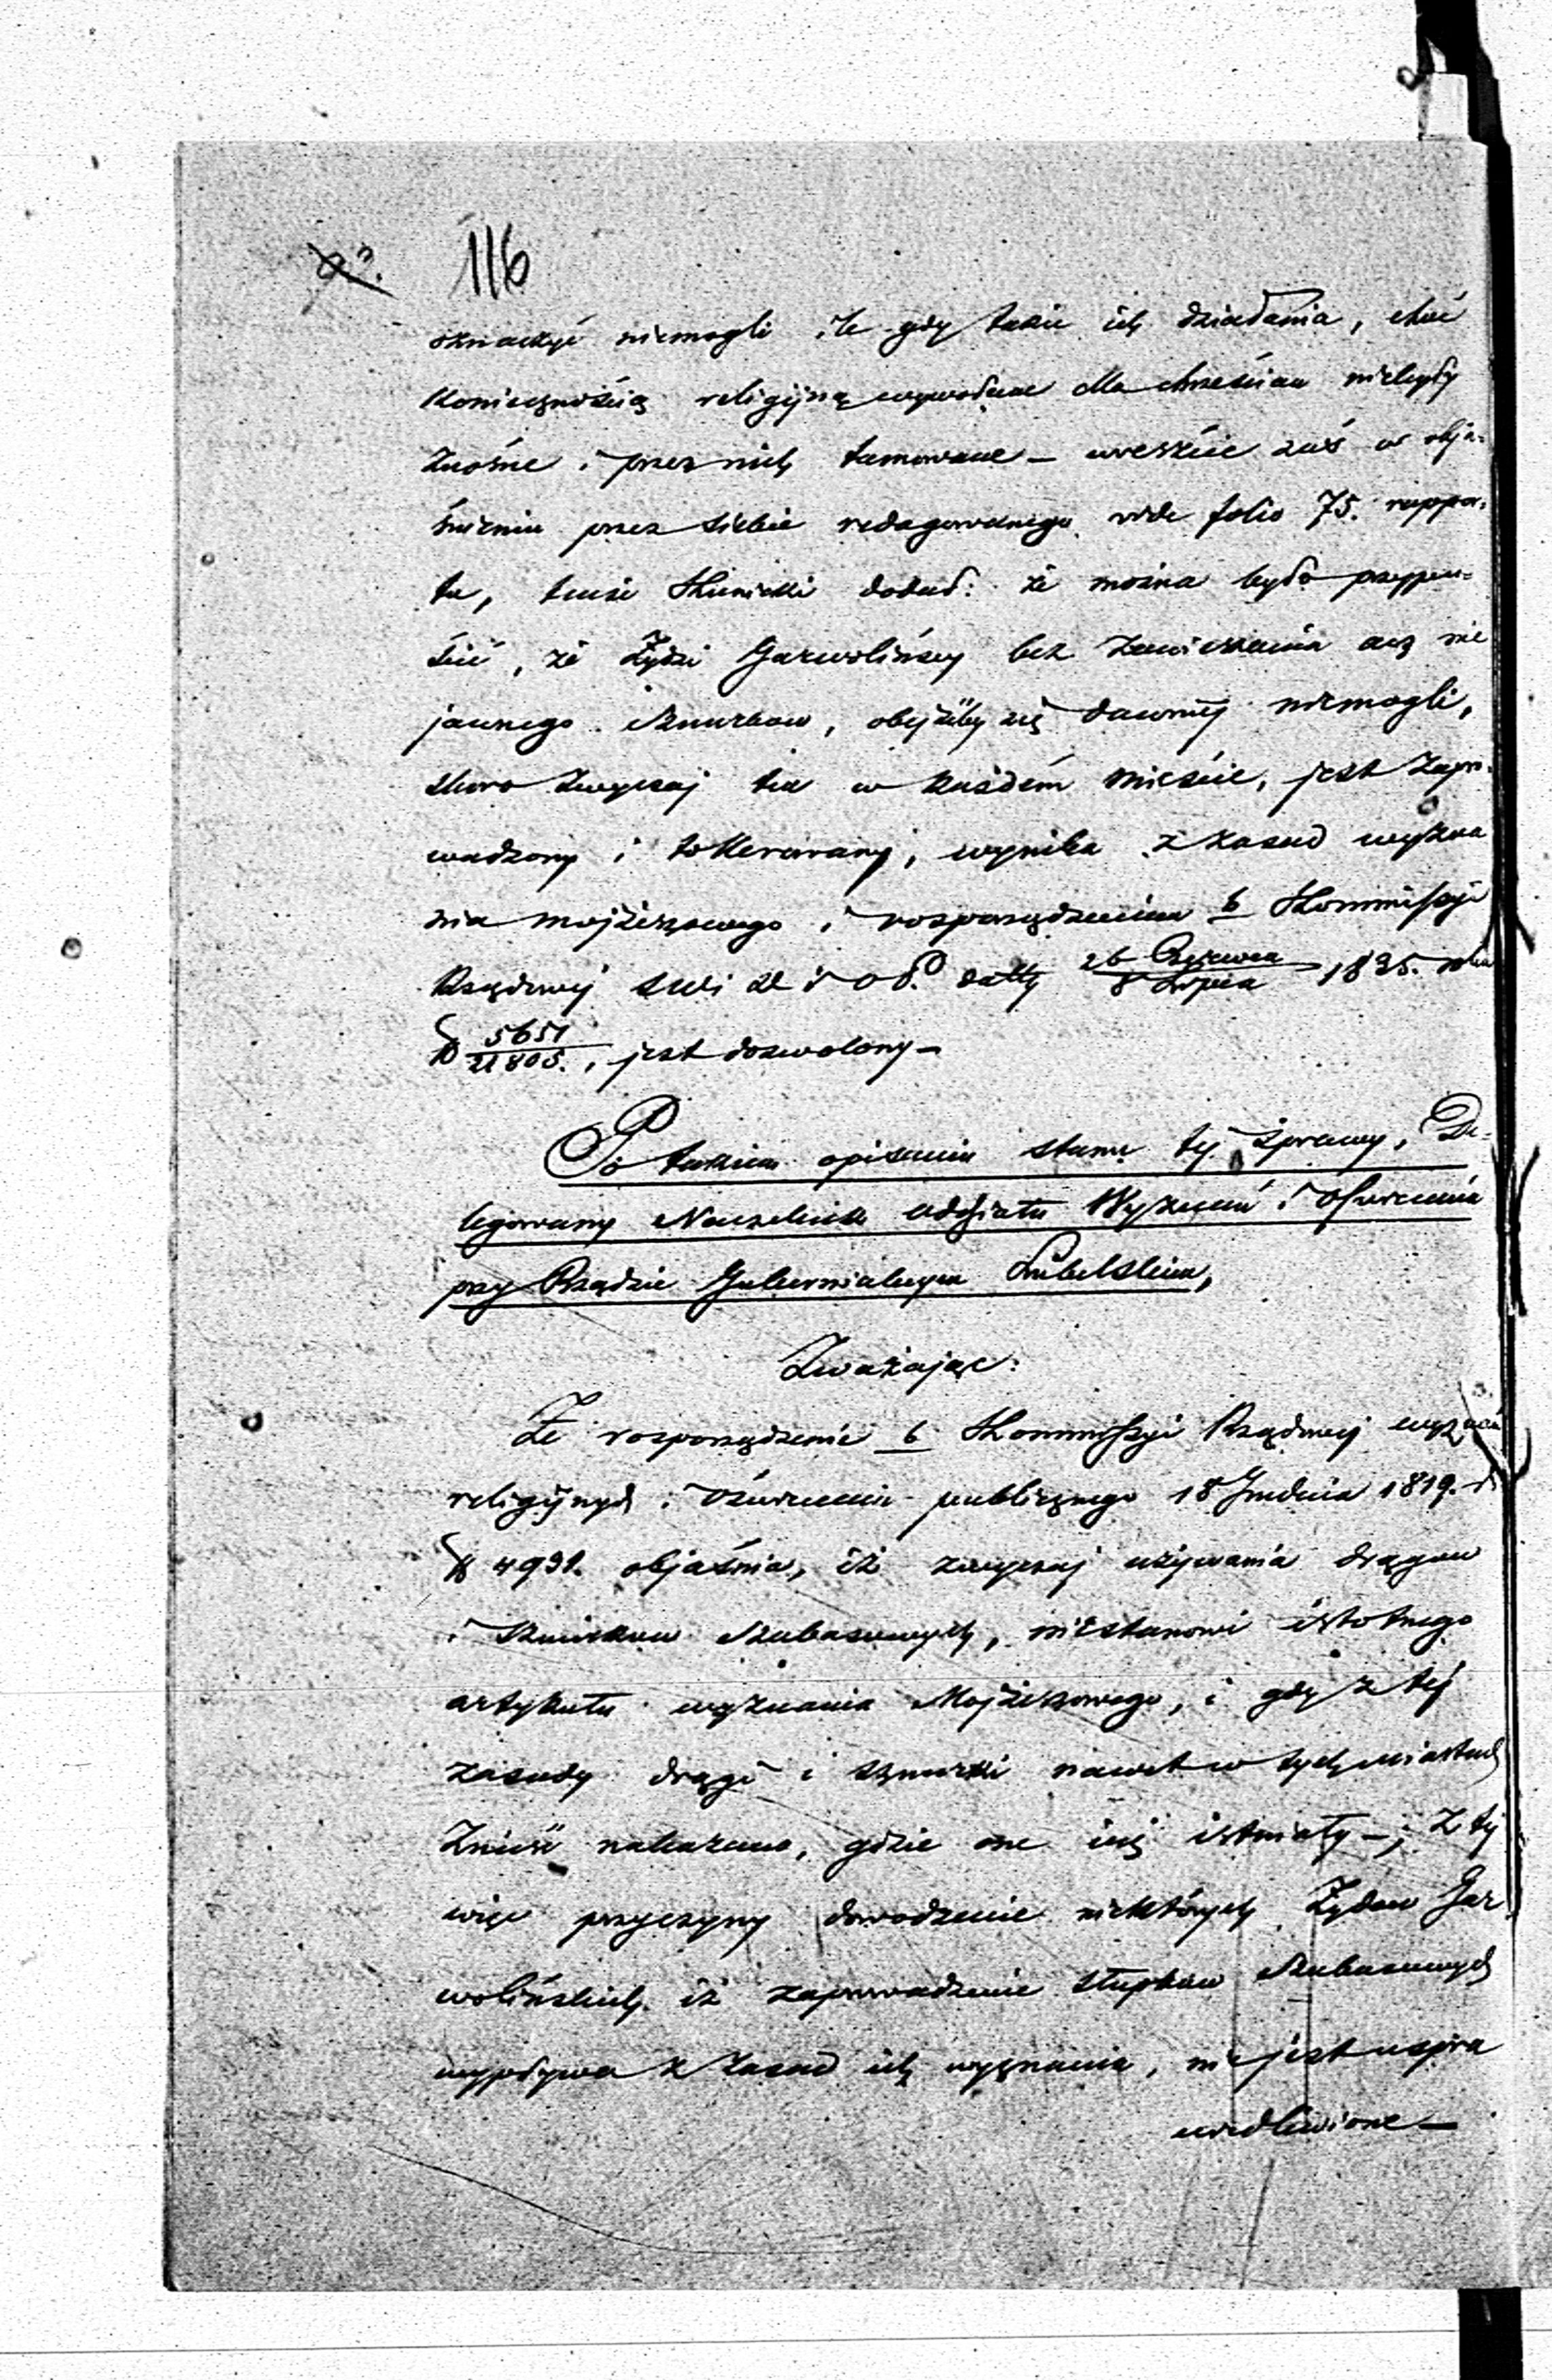 116
oznaczyć niemogli ile gdy takie ich działania, choć
koniecznością religijną wywołane dla chrześcian niebyły
znośne i przez nich tamowane – wreszcie zaś w obja-
śnieniu przez siebie redagowanego vide folio 75. rappor-
tu, tenże dodał: że można było przypu-
ścić, że Żydzi Garwolińscy bez zawieszania acz nie
jawnego sznurkow, obejśćby się dawniej niemogli,
skoro zwyczaj ten w każdém mieście, jest zapro-
wadzony i tollerowany, wynika z zasad wyzna
nia mojżeszowego i rosporządzeniem b Kommissyi
Rządowej S W D i O P. datty 26 Czerwca / 8 Lipca 1835. roku
N 5651 / 21805., jest dozwolony –
Po takiem opisaniu stanu tej sprawy, De-
legowany Naczelnik Oddziału Wyznań i Oświecenia
przy Rządzie Gubernialnym Lubelskim,
Zważając:
Że rosporządzenie b Kommissyi Rządowej wyznań
religijnych i Oświecenia publicznego 18 Grudnia 1819. r
N 4931. objaśnia, iż zwyczaj używania drągow
i sznurkow szabasowych, niestanowi istotnego
artykułu wyznania Mojżeszowego, i gdy z tej
zasady drągi i sznurki nawet w tych miastach
znieść nakazano, gdzie one iuż istniały –; z tej
więc przyczyny dowodzenie niektórych Żydow Gar
wolińskich iż zaprowadzenie słupkow szabasowych
wypływa z zasad ich wyznania, nie jest uspra
wiedliwione –